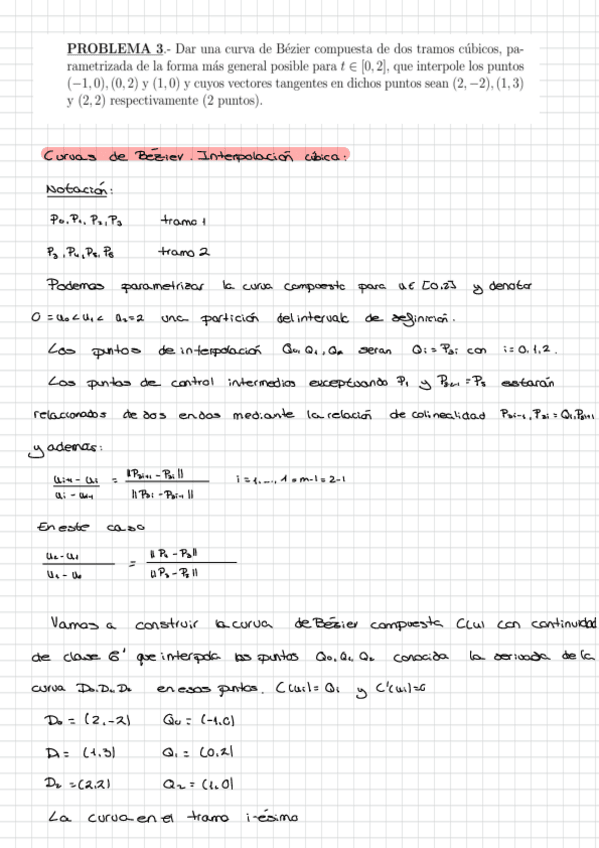 PROBLEMA 3.- Dar una curva de Bézier compuesta de dos tramos cúbicos, pa-
rametrizada de la forma más general posible para t ∈ [0, 2], que interpole los puntos
(−1, 0), (0, 2) y (1, 0) y cuyos vectores tangentes en dichos puntos sean (2, −2), (1, 3)
y (2, 2) respectivamente (2 puntos).
Curvas de Bézier. Interpolación cúbica:
Notación:
P₀, P₁, P₂, P₃ tramo 1
P₃, P₄, P₅, P₆ tramo 2
Podemos parametrizar la curva compuesta para u ∈ [0,2] y denotar
0 = u₀ < u₁ < u₂ = 2 una partición del intervalo de definición.
Los puntos de interpolación Q₀, Q₁, Q₂ seran Qi = P3i con i = 0, 1, 2.
Los puntos de control intermedios exceptuando P₁ y = P₅ estarán
relacionados de dos en dos mediante la relación de colinealidad P3i-1, P3i = Qi, P3i+1
y ademas:
ui+1 - ui / ui - ui-1 = ||P3i+1 - P3i|| / ||P3i - P3i-1|| i = 1, ..., m-1 = 2-1
En este caso
u₂ - u₁ / u₁ - u₀ = ||P₄ - P₃|| / ||P₃ - P₂||
Vamos a construir la curva de Bézier compuesta C(u) con continuidad
de clase C¹ que interpola los puntos Q₀, Q₁, Q₂ conocida la derivada de la
curva D₀, D₁, D₂ en esos puntos. C(ui) = Qi y C'(ui) =
D₀ = (2,-2) Q₀ = (-1,0)
D₁ = (1,3) Q₁ = (0,2)
D₂ = (2,2) Q₂ = (1,0)
La curva en el tramo i-ésimo